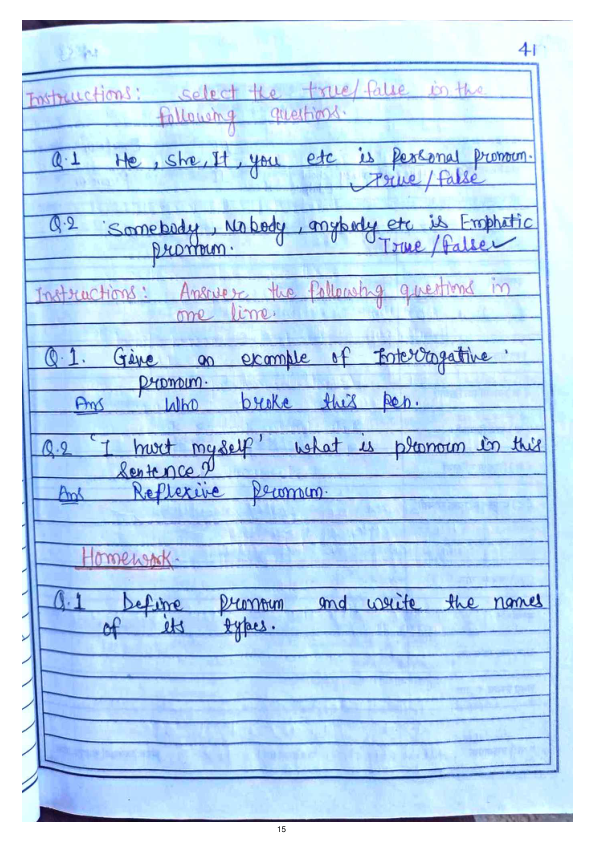 41
Instructions: Select the true/false in the
following questions.
Q.1 He, She, It, you etc is Personal pronoun.
✓True/false
Q.2 Somebody, Nobody, anybody etc is Emphatic
pronoun. True/false✓
Instructions: Answer the following questions in
one line.
Q.1. Give an example of Interrogative
pronoun.
Ans Who broke this pen.
Q.2 'I hurt myself' what is pronoun in this
Sentence?
Ans Reflexive Pronoun.
Homework.
Q.1 Define pronoun and write the names
of its types.
15